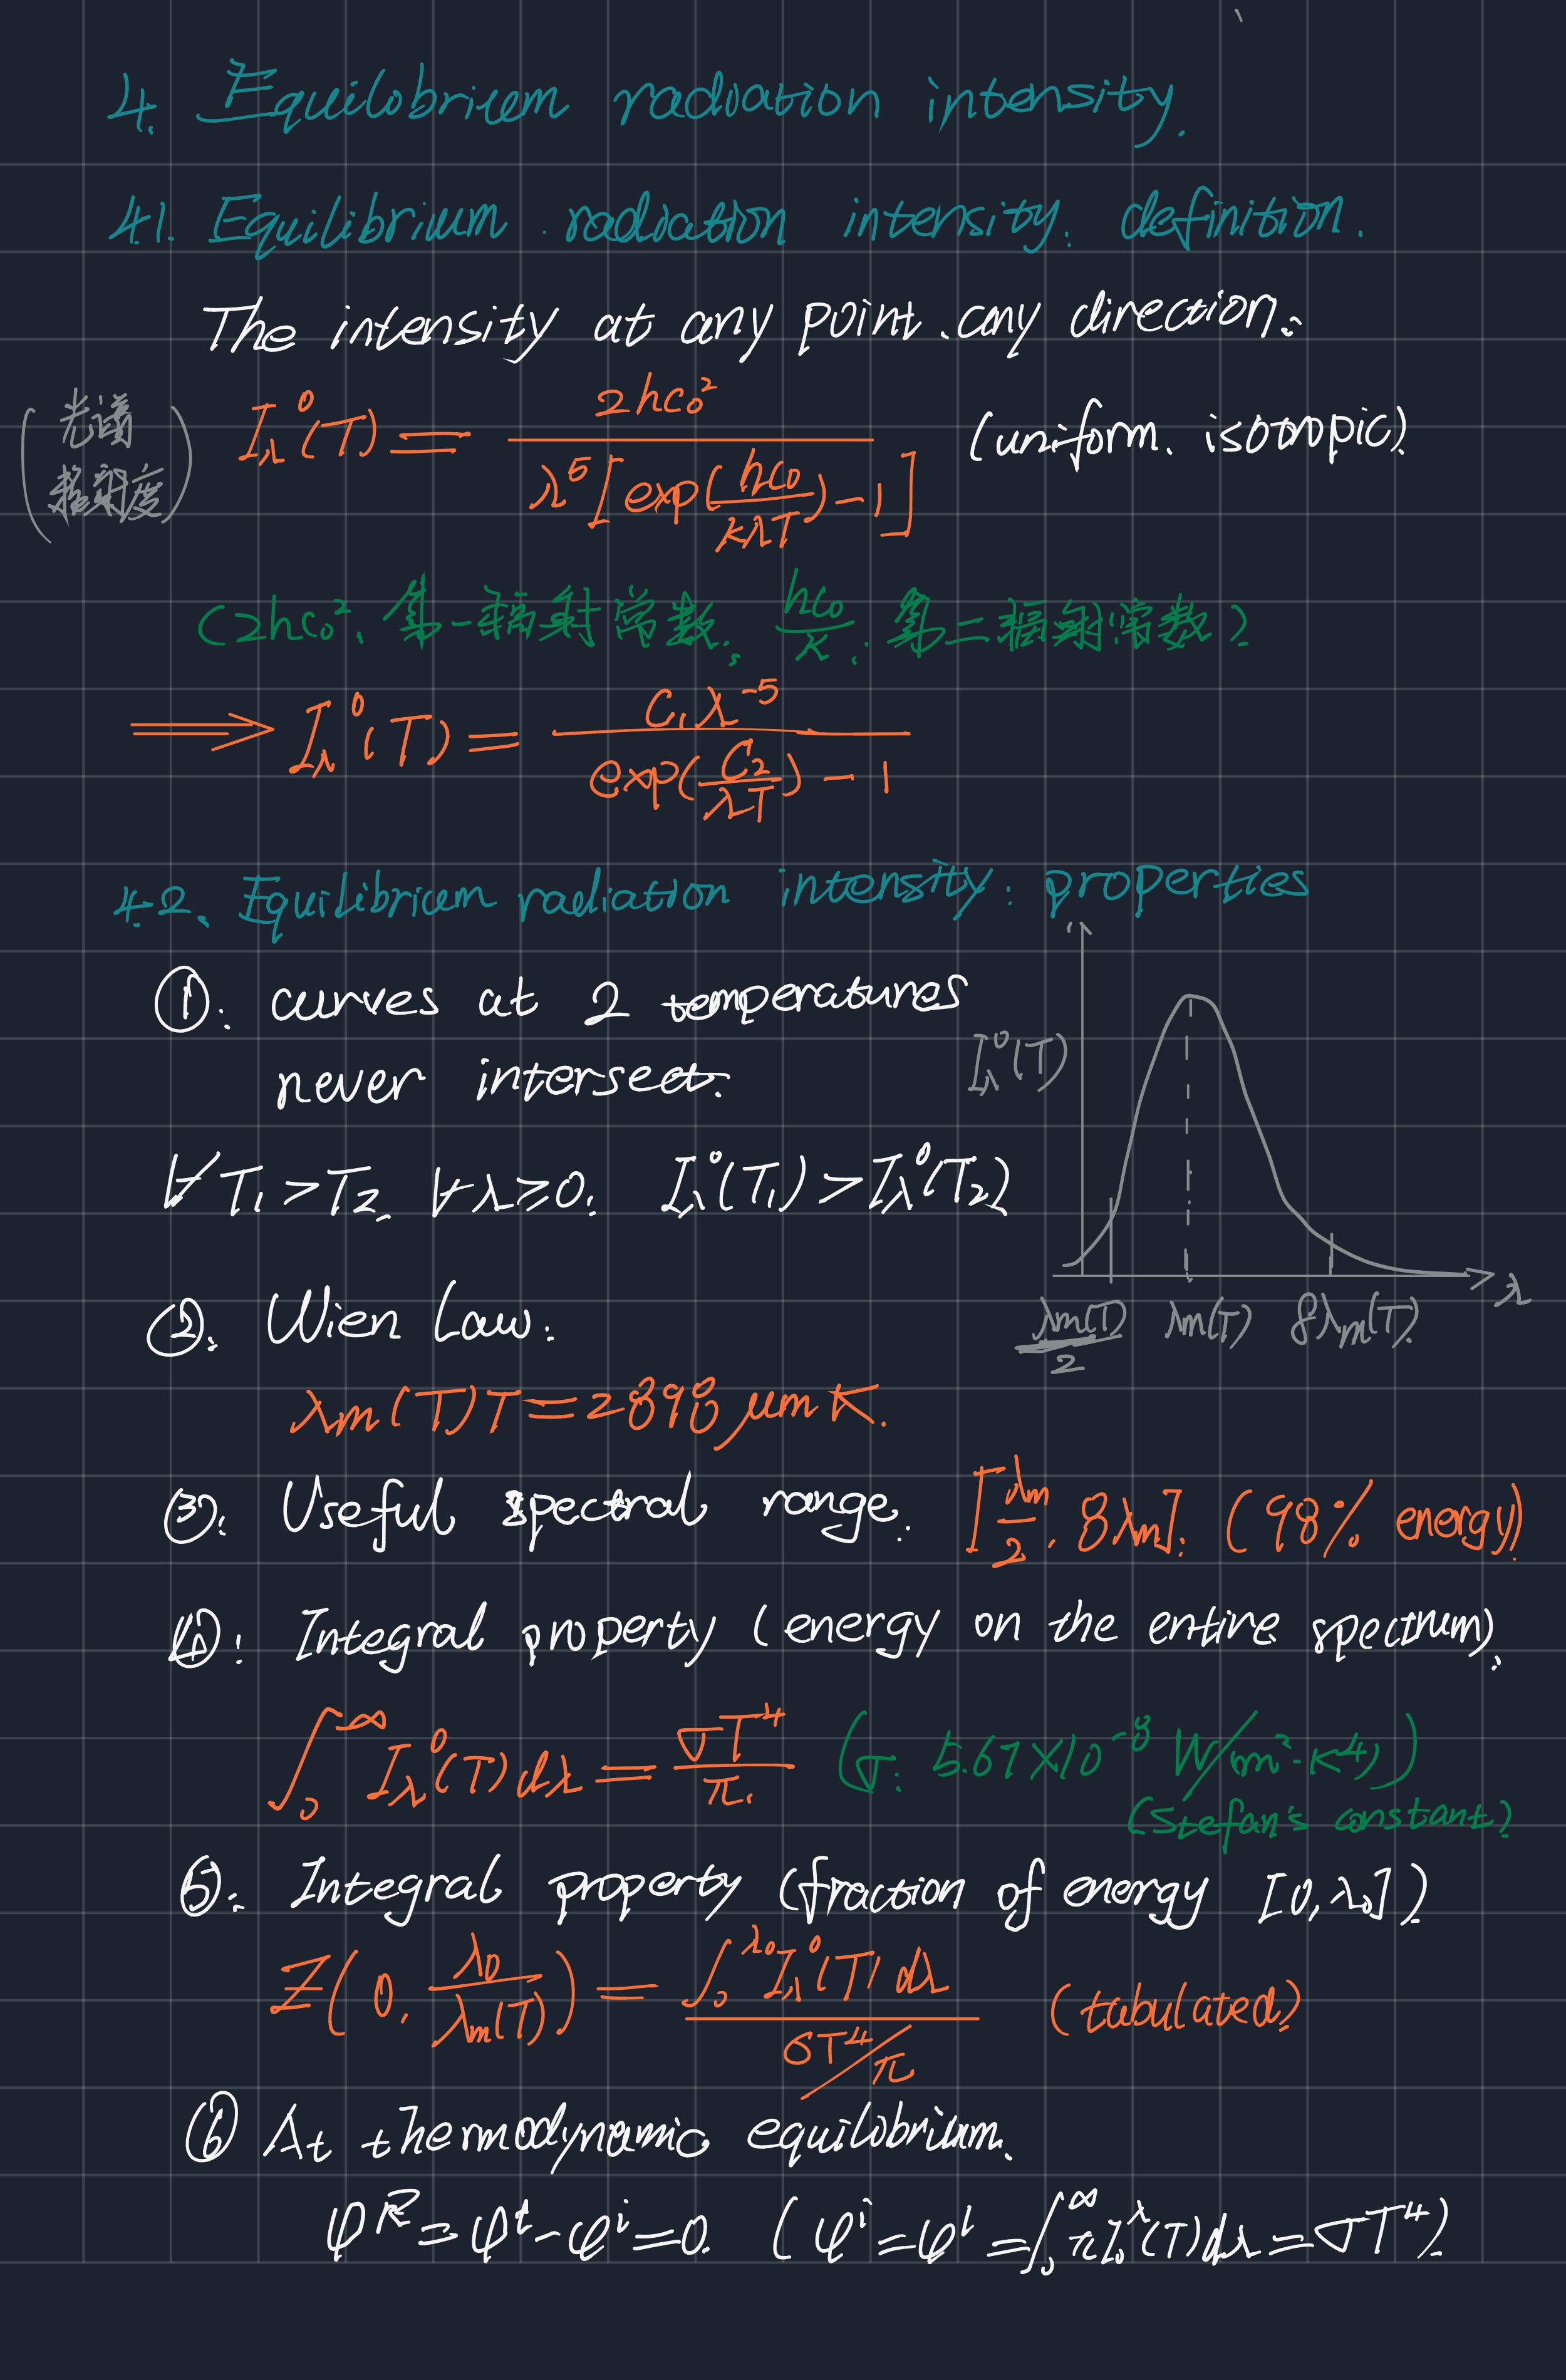 4. Equilobrium radiation intensity.
4.1. Equilibrium radiation intensity: definition.
The intensity at any point, any direction:
(光谱辐射度) I_λ^0(T) = 2hc₀² / λ⁵[exp(hc₀/kλT) − 1] (uniform. isotropic)
(2hc₀²: 第一辐射常数; hc₀/k: 第二辐射常数)
⟹ I_λ^0(T) = C₁λ⁻⁵ / (exp(C₂/λT) − 1)
4.2. Equilibrium radiation intensity: properties
①: curves at 2 temperatures
never intersect.
∀T₁ > T₂, ∀λ ≥ 0: I_λ^0(T₁) > I_λ^0(T₂)
I_λ^0(T)
λ
λm(T)/2 λm(T) 8λm(T)
②: Wien Law:
λm(T)T = 2898 μm K.
③: Useful spectral range. [λm/2, 8λm]. (98% energy)
④: Integral property (energy on the entire spectrum).
∫₀^∞ I_λ^0(T)dλ = σT⁴/π. (σ: 5.67×10⁻⁸ W/m²·K⁴)
(Stefan's constant)
⑤: Integral property (fraction of energy [0, λ₀])
Z(0, λ₀/λm(T)) = ∫₀^λ₀ I_λ^0(T) dλ / (σT⁴/π) (tabulated)
⑥ At thermodynamic equilibrium.
φ^R = φ^l − φ^i = 0. (φ^i = φ^l = ∫₀^∞ πI₀^λ(T)dλ = σT⁴)